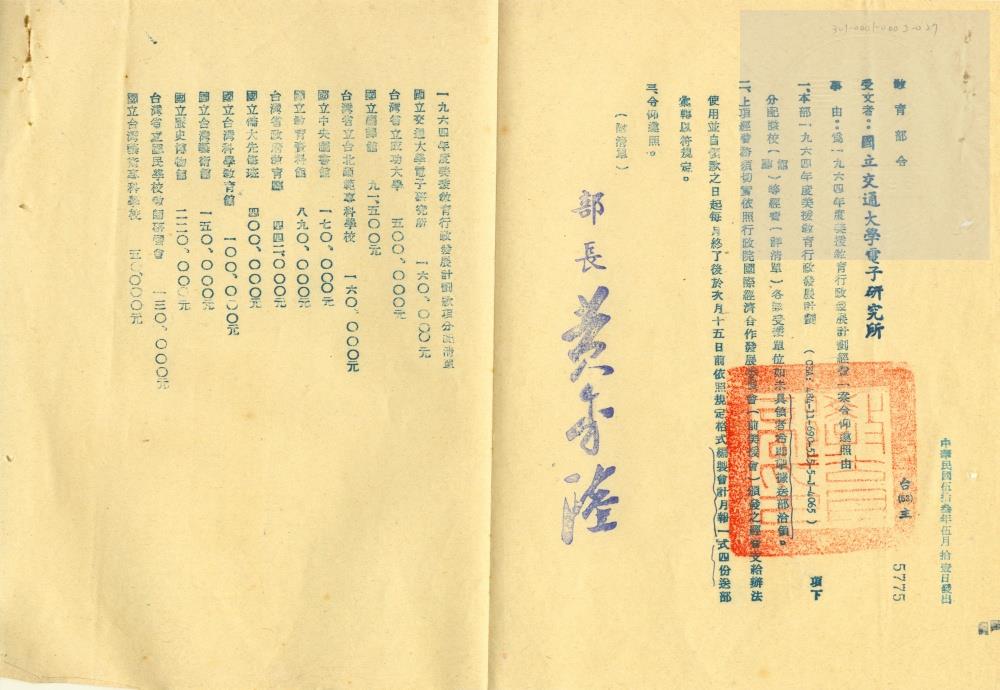 301-0001-0003-027
中華民國伍拾叁年伍月拾壹日發出
台(53)主 5775
教育部令
受文者：國立交通大學電子研究所
事由：為一九六四年度美援教育行政發展計劃經費一案令仰遵照由
一、本部一九六四年度美援教育行政發展計劃(484-11-690-515-5-4065)項下
分配該校(館)等經費(詳清單)、各該受援單位如未具領者希即備據送部洽領。
二、上項經費務須切實依照行政院國際經濟合作發展委員會(前美援會)頒發之經費支給辦法
使用並自領款之日起每月終了後於次月十五日前依照規定格式編製會計月報一式四份送部
彙轉以符規定。
三、令仰遵照。
(附清單)
部長 黃季陸
一九六四年度美援教育行政發展計劃款項分配清單
國立交通大學電子研究所 一六〇、〇〇〇元
台灣省立成功大學 五〇〇、〇〇〇元
國立編譯館 九一、五〇〇元
台灣省立台北師範專科學校 一六〇、〇〇〇元
國立中央圖書館 一七〇、〇〇〇元
國立教育資料館 八九〇、〇〇〇元
台灣省政府教育廳 四四二、〇〇〇元
國立僑大先修班 四〇〇、〇〇〇元
國立台灣科學教育館 一〇〇、〇〇〇元
國立台灣藝術館 一五〇、〇〇〇元
國立歷史博物館 二二〇、〇〇〇元
台灣省立國民學校教師研習會 一三〇、〇〇〇元
國立台灣藝術專科學校 五〇、〇〇〇元